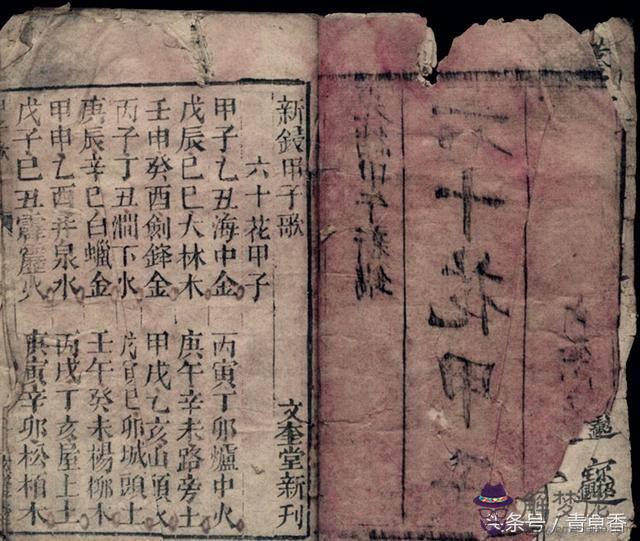 十花甲
甲午新鐫
新鋟甲子歌 文奎堂新刊
六十花甲子
甲子乙丑海中金 丙寅丁卯爐中火
戊辰巳巳大林木 庚午辛未路旁土
壬申癸酉劍鋒金 甲戌乙亥山頭火
丙子丁丑澗下火 戊寅巳卯城頭土
庚辰辛巳白蠟金 壬午癸未楊柳木
甲申乙酉井泉水 丙戌丁亥屋上土
戊子巳丑霹靂火 庚寅辛卯松柏木
解梦
头条号/青食香